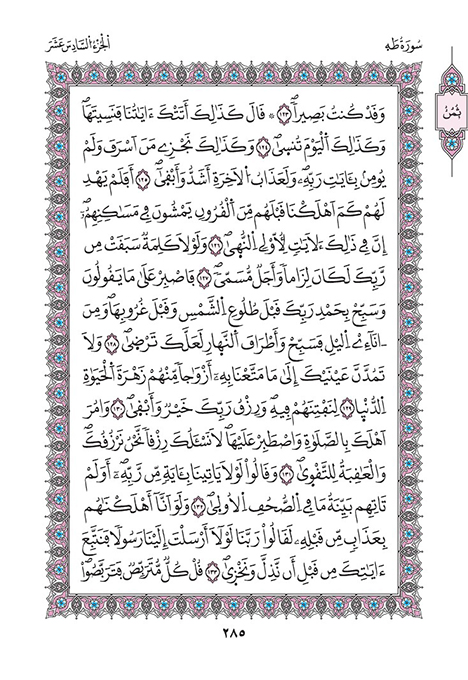 سُورَةُ طَهَ
الجُزْءُ السَّادِسَ عَشَرَ
ثُمُنٌ
وَقَدْ كُنتُ بَصِيراً ١٢٣ ۞ قَالَ كَذَٰلِكَ أَتَتْكَ ءَايَٰتُنَا فَنَسِيتَهَا
وَكَذَٰلِكَ اَ۬لْيَوْمَ تُنسَىٰ ١٢٤ وَكَذَٰلِكَ نَجْزِے مَنَ اَسْرَفَ وَلَمْ
يُومِنۢ بِـَٔايَٰتِ رَبِّهِۦ وَلَعَذَابُ اُ۬لَاخِرَةِ أَشَدُّ وَأَبْقَىٰ ١٢٥ أَفَلَمْ يَهْدِ
لَهُمْ كَمَ اَهْلَكْنَا قَبْلَهُم مِّنَ اَ۬لْقُرُونِ يَمْشُونَ فِے مَسَٰكِنِهِمُۥ
إِنَّ فِے ذَٰلِكَ ءَلَايَٰتٖ لِّأُوْلِے اِ۬لنُّهَىٰ ١٢٦ وَلَوْلَا كَلِمَةٞ سَبَقَتْ مِن
رَّبِّكَ لَكَانَ لِزَاماٗ وَأَجَلٞ مُّسَمّىٗ ١٢٧ فَاصْبِرْ عَلَىٰ مَا يَقُولُونَ
وَسَبِّحْ بِحَمْدِ رَبِّكَ قَبْلَ طُلُوعِ اِ۬لشَّمْسِ وَقَبْلَ غُرُوبِهَا وَمِنَ
اٰنَآءِےْ اِ۬ليْلِ فَسَبِّحْ وَأَطْرَافَ اَ۬لنَّهَارِ لَعَلَّكَ تَرْضَىٰ ١٢٨ وَلَا
تَمُدَّنَّ عَيْنَيْكَ إِلَىٰ مَا مَتَّعْنَا بِهِۦٓ أَزْوَٰجاٗ مِّنْهُمْ زَهْرَةَ اَ۬لْحَيَوٰةِ
اِ۬لدُّنْيَا ١٢٩ لِنَفْتِنَهُمْ فِيهِ وَرِزْقُ رَبِّكَ خَيْرٞ وَأَبْقَىٰ ١٣٠ وَامُرَ
اَهْلَكَ بِالصَّلَوٰةِ وَاصْطَبِرْ عَلَيْهَا لَا نَسْـَٔلُكَ رِزْقاٗ نَّحْنُ نَرْزُقُكَ
وَالْعَٰقِبَةُ لِلتَّقْوَىٰ ١٣١ وَقَالُواْ لَوْلَا يَاتِينَا بِـَٔايَةٖ مِّن رَّبِّهِۦٓ أَوَلَمْ
تَاتِهِم بَيِّنَةُ مَا فِے اِ۬لصُّحُفِ اِ۬لُاولَىٰ ١٣٢ وَلَوَ اَنَّآ أَهْلَكْنَٰهُم
بِعَذَابٖ مِّن قَبْلِهِۦ لَقَالُواْ رَبَّنَا لَوْلَآ أَرْسَلْتَ إِلَيْنَا رَسُولاٗ فَنَتَّبِعَ
ءَايَٰتِكَ مِن قَبْلِ أَن نَّذِلَّ وَنَخْزَىٰ ١٣٣ قُلْ كُلّٞ مُّتَرَبِّصٞ فَتَرَبَّصُواْ
٢٨٥